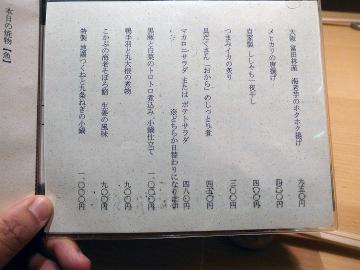 大阪 富田林産 海老芋のホクホク揚げ 九五〇円
メヒカリの唐揚げ 四五〇円
自家製 ししゃも一夜干し 四〇〇円
つまみイカの炙り 三〇〇円
具だくさん「おから」のしっとり煮 四五〇円
マカロニサラダ または ポテトサラダ 四八〇円
※どちらか日替わりになります
黒豚と白菜のトロトロ煮込み 小鍋仕立て 一、〇〇〇円
鴨手羽と丸大根の煮物 九〇〇円
こかぶの海老そぼろ餡 生姜の風味 九〇〇円
特製 地鶏つくねと九条ねぎの小鍋 一、〇〇〇円
本日の焼物【魚】